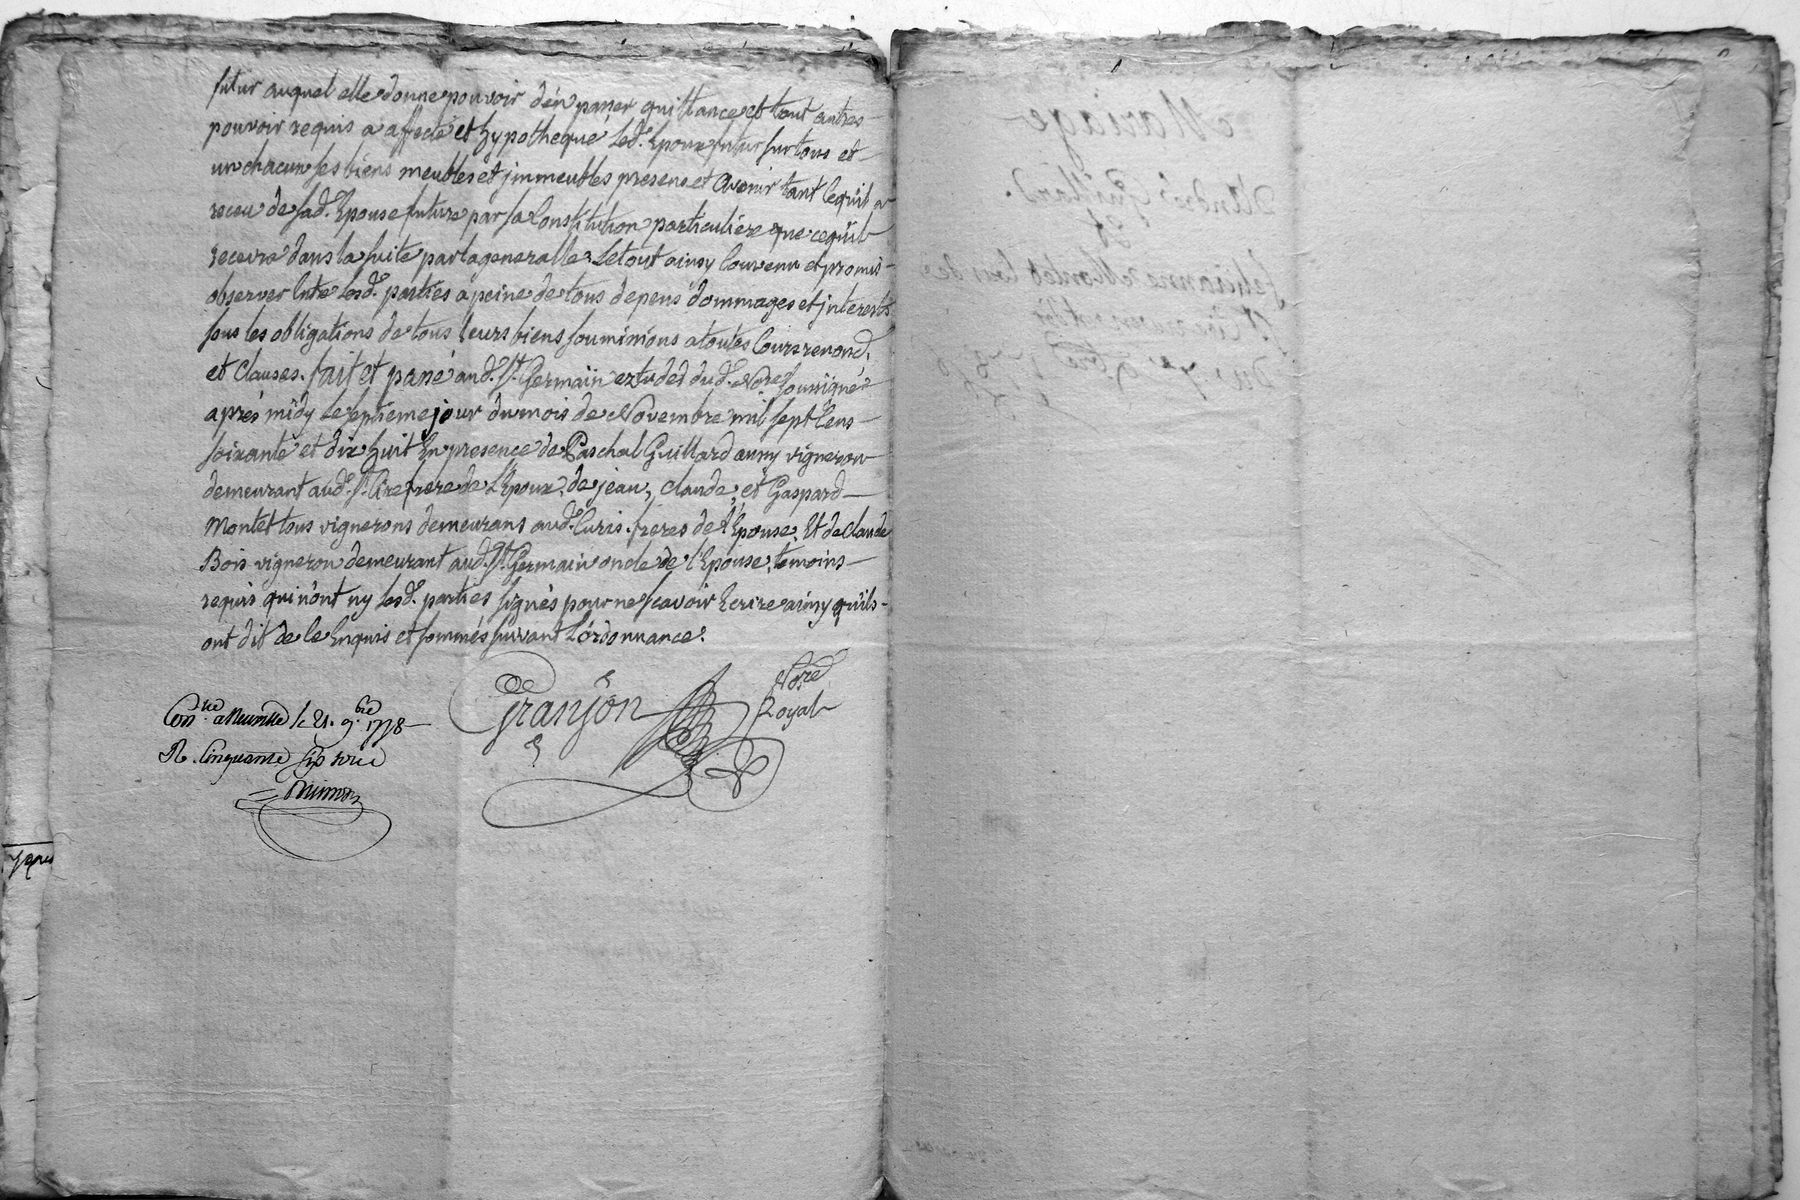 futur auquel elle donne pouvoir d'en passer quittance et tout autres
pouvoir requis a affecté et hypothequé led. Epoux futur sur tous et
un chacun ses biens meubles et jmmeubles presens et avenir tant cequil a
receu de lad. Epouse future par sa Constitution particuliére que cequil
recevra dans la suite par la generalle, Le tout ainsy Convenu et promis
observer Entre lesd. parties a peine de tous depens dommages et jnterests
sous les obligations de tous leurs biens soumimions a toutes Cours renond.
et Clauses. fait et passé aud. St. Germain estudes dud. Nore soussigné
aprés midy le septiéme jour du mois de Novembre mil sept Cens
soixante et dix huit En presence de Paschal Guillard aussy vigneron
demeurant aud. St. Cire frere de L'Epoux, de jean, claude, et Gaspard
Montet tous vignerons demeurans aud. Curis freres de l'Epouse, Et de Claude
Bois vigneron demeurant aud. St. Germain oncle de l'Epouse, temoins
requis qui n'ont ny lesd. parties signés pour ne scavoir Ecrire ainsy qu'ils
ont dit de le Enquis et sommés suivant L'ordonnance.
Granjon Nore
Royal
Conlle a Neuville le 21. 9.bre 1778
R. Cinquante six sous
Mariage
André Guillard.
Et
Montet
Du 7e